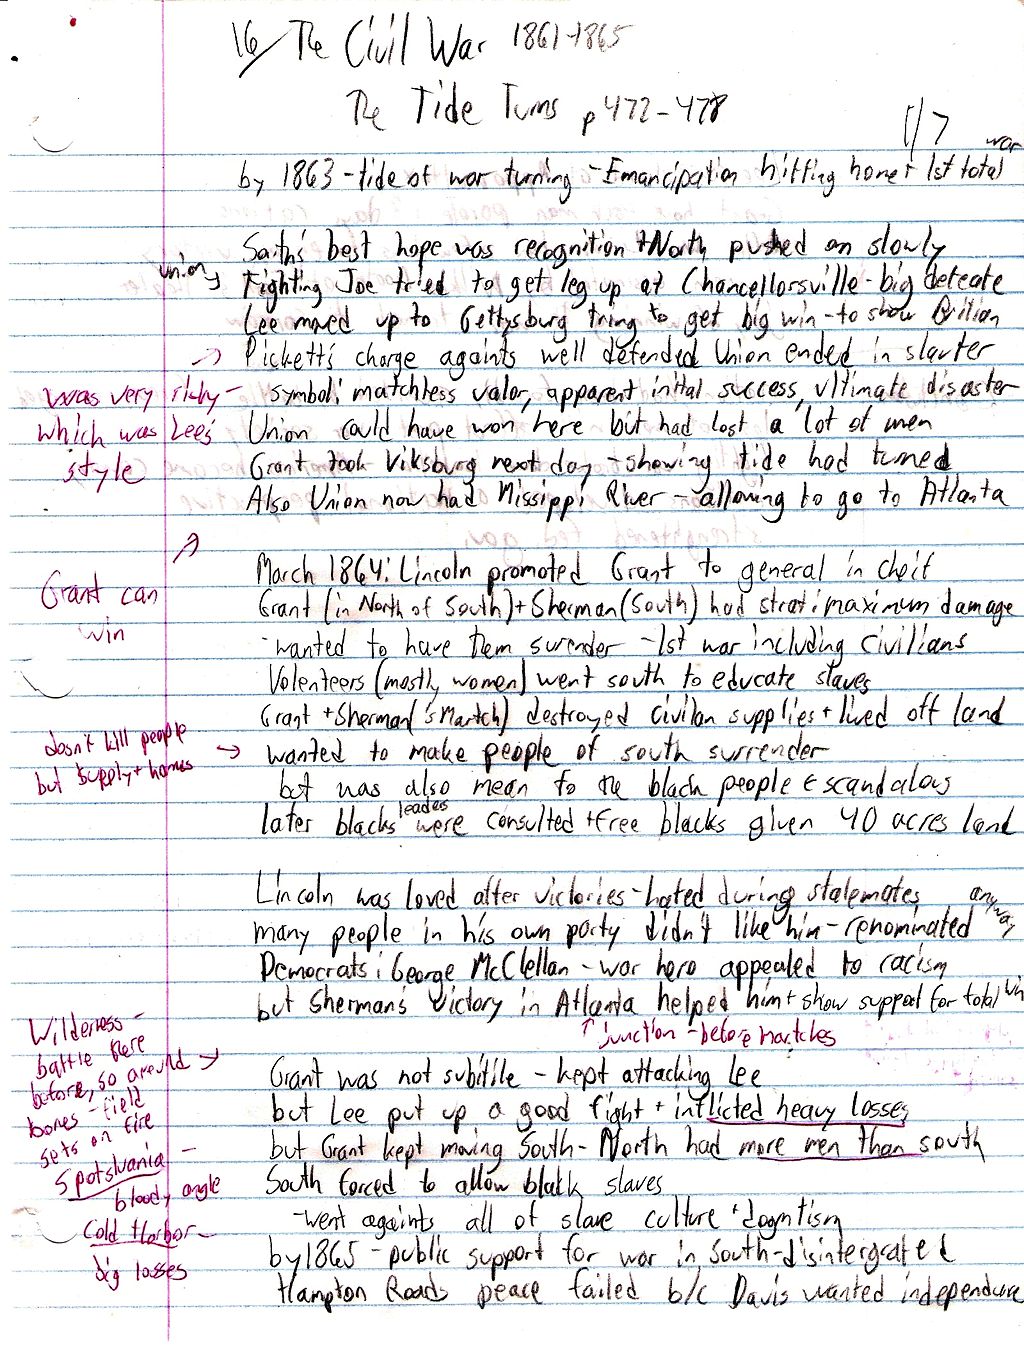 16/ The Civil War 1861-1865
The Tide Turns p 472-478
1/7
by 1863 - tide of war turning - Emancipation hitting home + 1st total war
South's best hope was recognition + North pushed on slowly
union → Fighting Joe tried to get leg up at Chancellorsville - big defeate
Lee moved up to Gettysburg tring to get big win - to show
→ Pickett's charge againts well defended Union ended in slauter
was very risky - which was Lee's style
symbol: matchless valor, apparent inital success, ultimate disaster
Union could have won here but had lost a lot of men
Grant took Viksburg next day - showing tide had turned
Also Union now had Missippi River - allowing to go to Atlanta
Grant can win
March 1864: Lincoln promoted Grant to general in cheif
Grant (in North of South) + Sherman (South) had strat: maximum damage
- wanted to have them surender - 1st war including civilians
Volenteers (mostly women) went south to educate slaves
Grant + Sherman ('s Martch) destroyed civilan supplies + lived off land
dosn't kill people but supply + homes →
wanted to make people of south surrender
but was also mean to the black people ← scandalous
later blacks leaders were consulted + free blacks given 40 acres land
Lincoln was loved after victories - hated during stalemates
many people in his own party didn't like him - renominated anyway
Democrats: George McClellan - war hero appealed to racism
but Sherman's victory in Atlanta helped him + show support for total win
↑ junction - before martches
Wilderness -
battle there
before, so around →
bones - field
sets on fire
Grant was not subitile - kept attacking Lee
but Lee put up a good fight + inflicted heavy losses
but Grant kept moving South - North had more men than south
Spotslvania -
bloody angle
South forced to allow black slaves
Cold Harbor -
big losses
- went againts all of slave culture + dogmtism
by 1865 - public support for war in South - disintergrated
Hampton Roads peace failed b/c Davis wanted independence